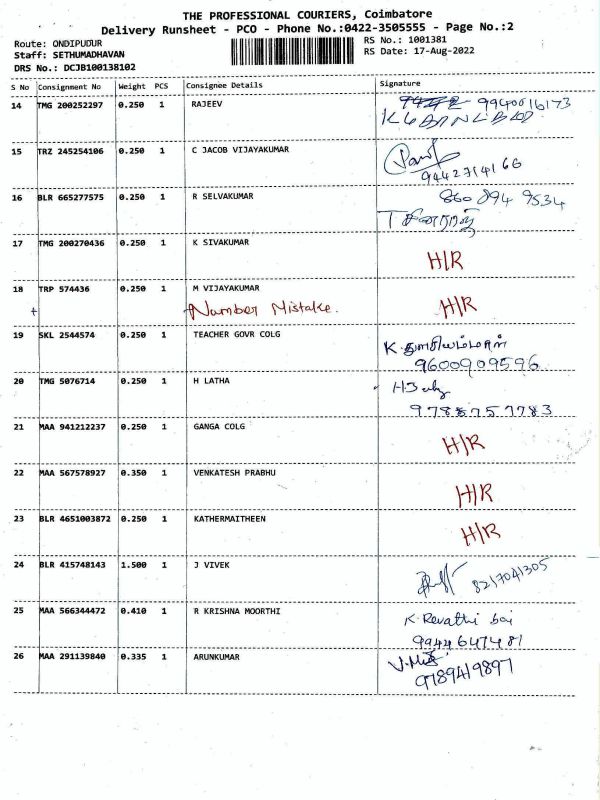 THE PROFESSIONAL COURIERS, Coimbatore
Delivery Runsheet - PCO - Phone No.:0422-3505555 - Page No.:2
Route: ONDIPUDUR
RS No.: 1001381
Staff: SETHUMADHAVAN
RS Date: 17-Aug-2022
DRS No.: DCJB100138102
S No Consignment No Weight PCS Consignee Details Signature
14 TMG 200252297 0.250 1 RAJEEV 9940016173
15 TRZ 245254106 0.250 1 C JACOB VIJAYAKUMAR
9442714166
16 BLR 665277575 0.250 1 R SELVAKUMAR 860 894 9534
17 TMG 200270436 0.250 1 K SIVAKUMAR
H/R
18 TRP 574436 0.250 1 M VIJAYAKUMAR
Number Mistake. H/R
19 SKL 2544574 0.250 1 TEACHER GOVR COLG
9600909596
20 TMG 5076714 0.250 1 H LATHA
9788757783
21 MAA 941212237 0.250 1 GANGA COLG
H/R
22 MAA 567578927 0.350 1 VENKATESH PRABHU
H/R
23 BLR 4651003872 0.250 1 KATHERMAITHEEN
H/R
24 BLR 415748143 1.500 1 J VIVEK
8217041305
25 MAA 566344472 0.410 1 R KRISHNA MOORTHI
K. Revathi bai
9944647481
26 MAA 291139840 0.335 1 ARUNKUMAR
9789419897